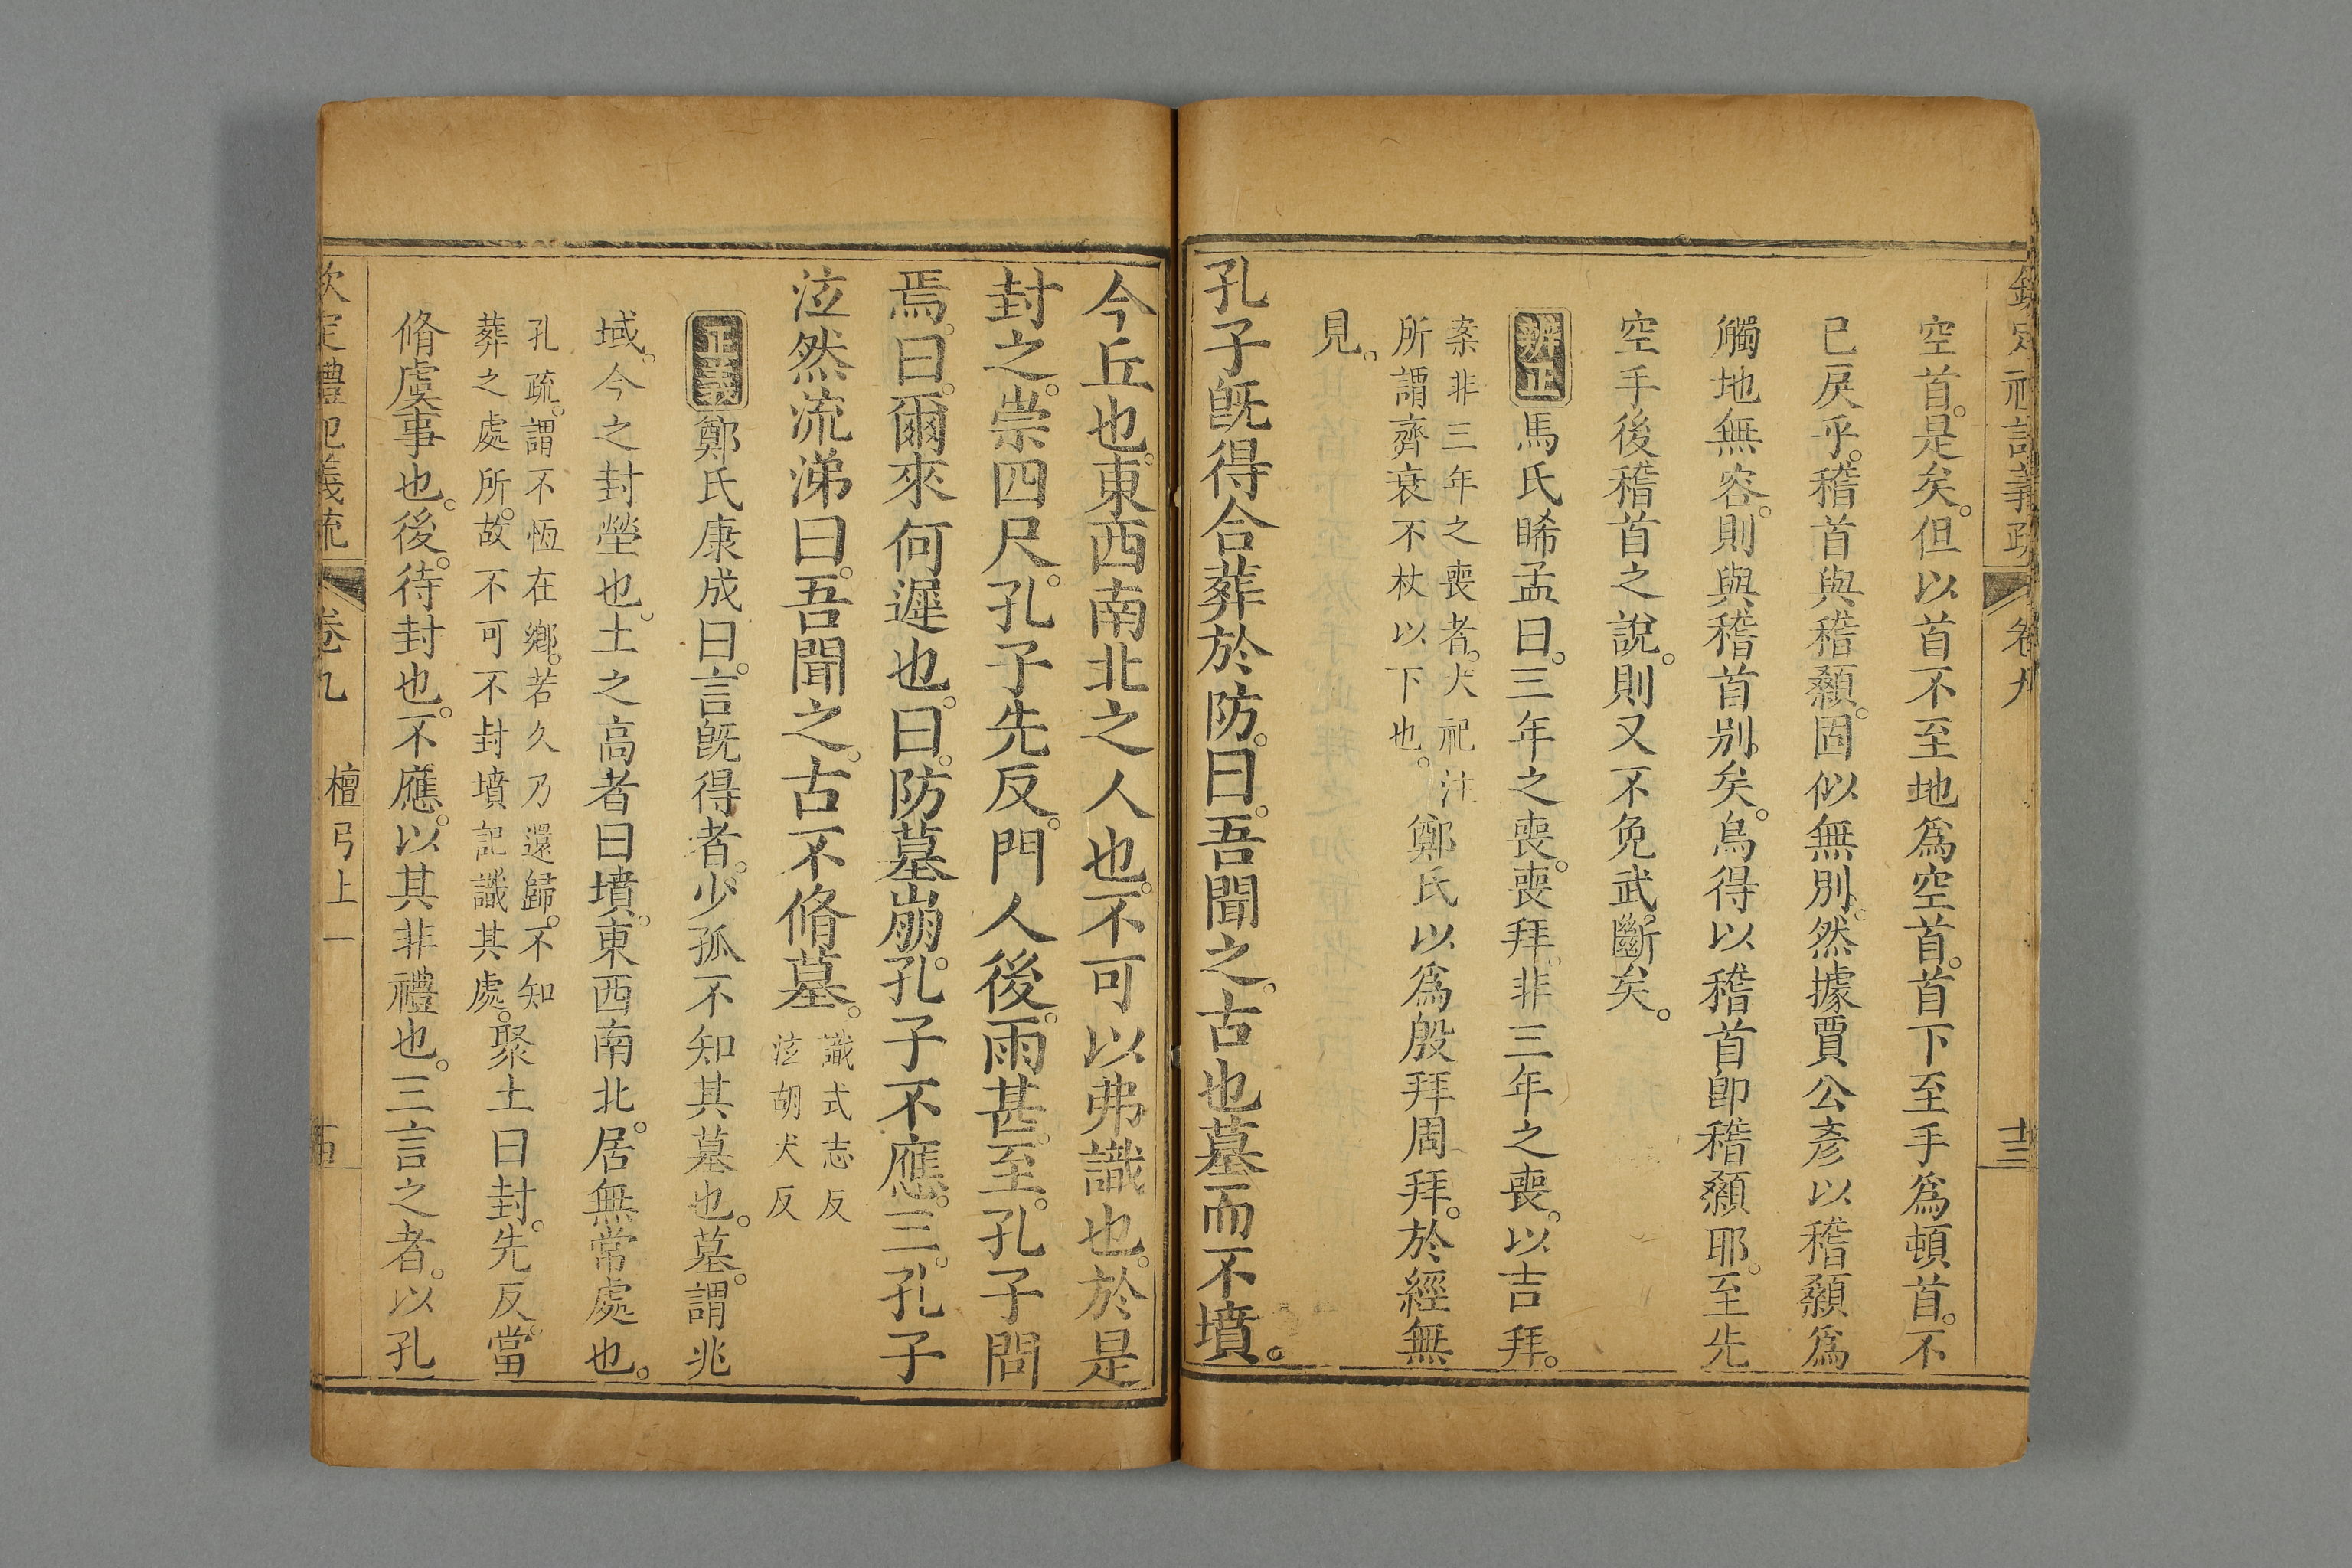 欽定禮記義疏 卷九 十三
空首。是矣。但以首不至地爲空首。首下至手爲頓首。不
已戾乎。稽首與稽顙。固似無別。然據賈公彥以稽顙爲
觸地無容。則與稽首別矣。烏得以稽首卽稽顙耶。至先
空手後稽首之說。則又不免武斷矣。
辨正 馬氏睎孟曰。三年之喪。喪拜。非三年之喪。以吉拜。
案非三年之喪者。
所謂齊衰不杖以下也。
犬祀注
鄭氏以爲殷拜周拜。於經無
見。
孔子旣得合葬於防。曰。吾聞之。古也墓而不墳。
今丘也。東西南北之人也。不可以弗識也。於是
封之。崇四尺。孔子先反。門人後。雨甚。至。孔子問
焉。曰。爾來何遲也。曰。防墓崩。孔子不應。三。孔子
泫然流涕曰。吾聞之。古不脩墓。
識式志反
泫胡犬反
正義 鄭氏康成曰。言旣得者。少孤不知其墓也。墓。謂兆
域。今之封塋也。土之高者曰墳。東西南北。居無常處也。
孔疏。謂不恆在鄉。若久乃還歸。不知
葬之處所。故不可不封墳記識其處。
聚土曰封。先反。當
脩虞事也。後。待封也。不應。以其非禮也。三言之者。以孔
欽定禮記義疏 卷九 檀弓上一